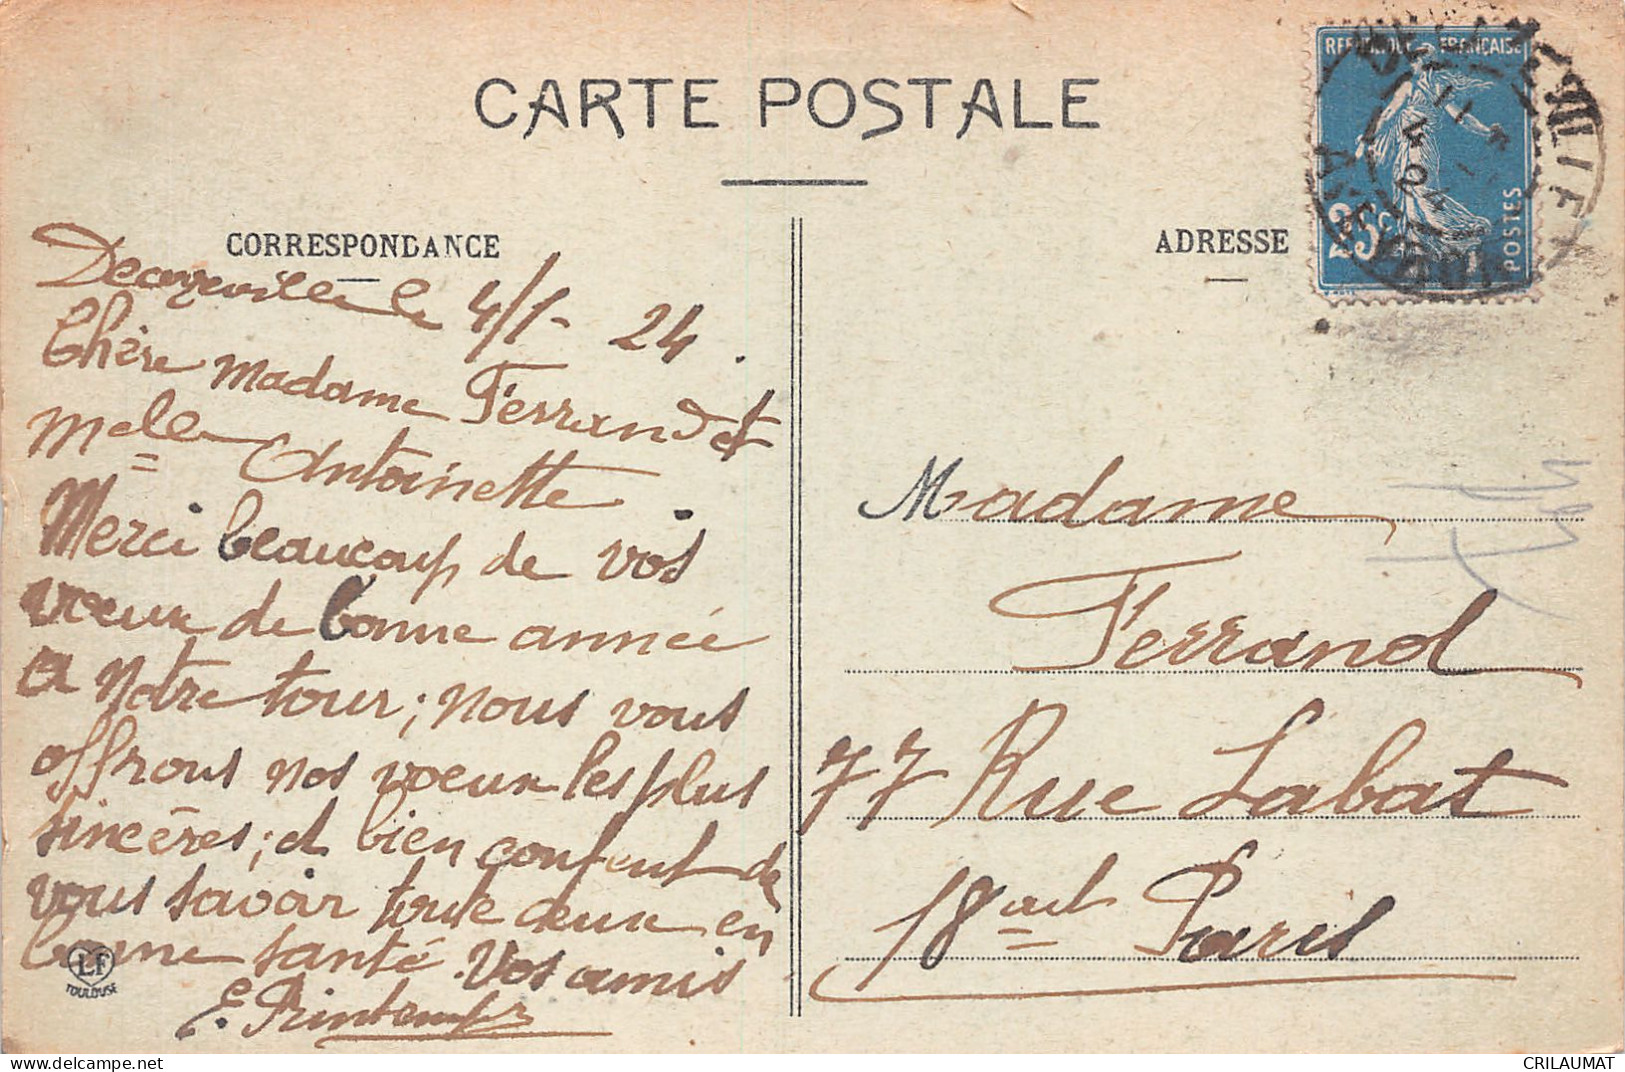 CARTE POSTALE
CORRESPONDANCE
Decazeville le 4/1-24.
Chère Madame Ferrand et
Melle Antoinette.
Merci beaucoup de vos
voeux de bonne année
a notre tour; nous vous
offrons nos voeux les plus
sincéres; et bien content de
vous savoir toute deux en
bonne santé. Vos amis
E. Printemps
LF
TOULOUSE
ADRESSE
REPUBLIQUE FRANÇAISE
25c
POSTES
Madame
Ferrand
77 Rue Labat
18 art Paris
CRILAUMAT